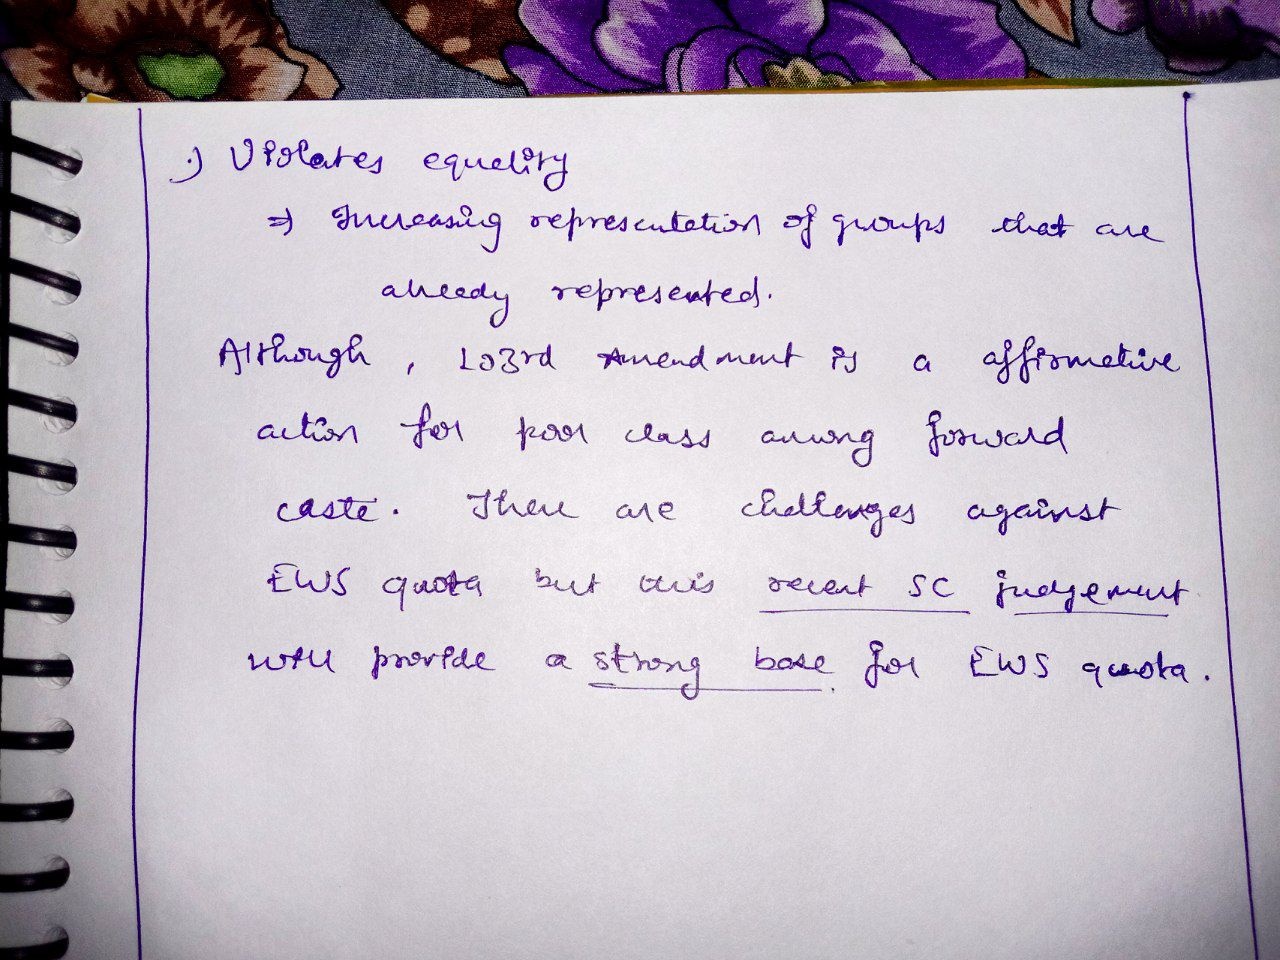 .) Violates equality
⇒ Increasing representation of groups that are
already represented.
Although, 103rd Amendment is a affirmative
action for poor class among forward
caste. There are challenges against
EWS quota but this recent SC judgement
will provide a strong base for EWS quota.